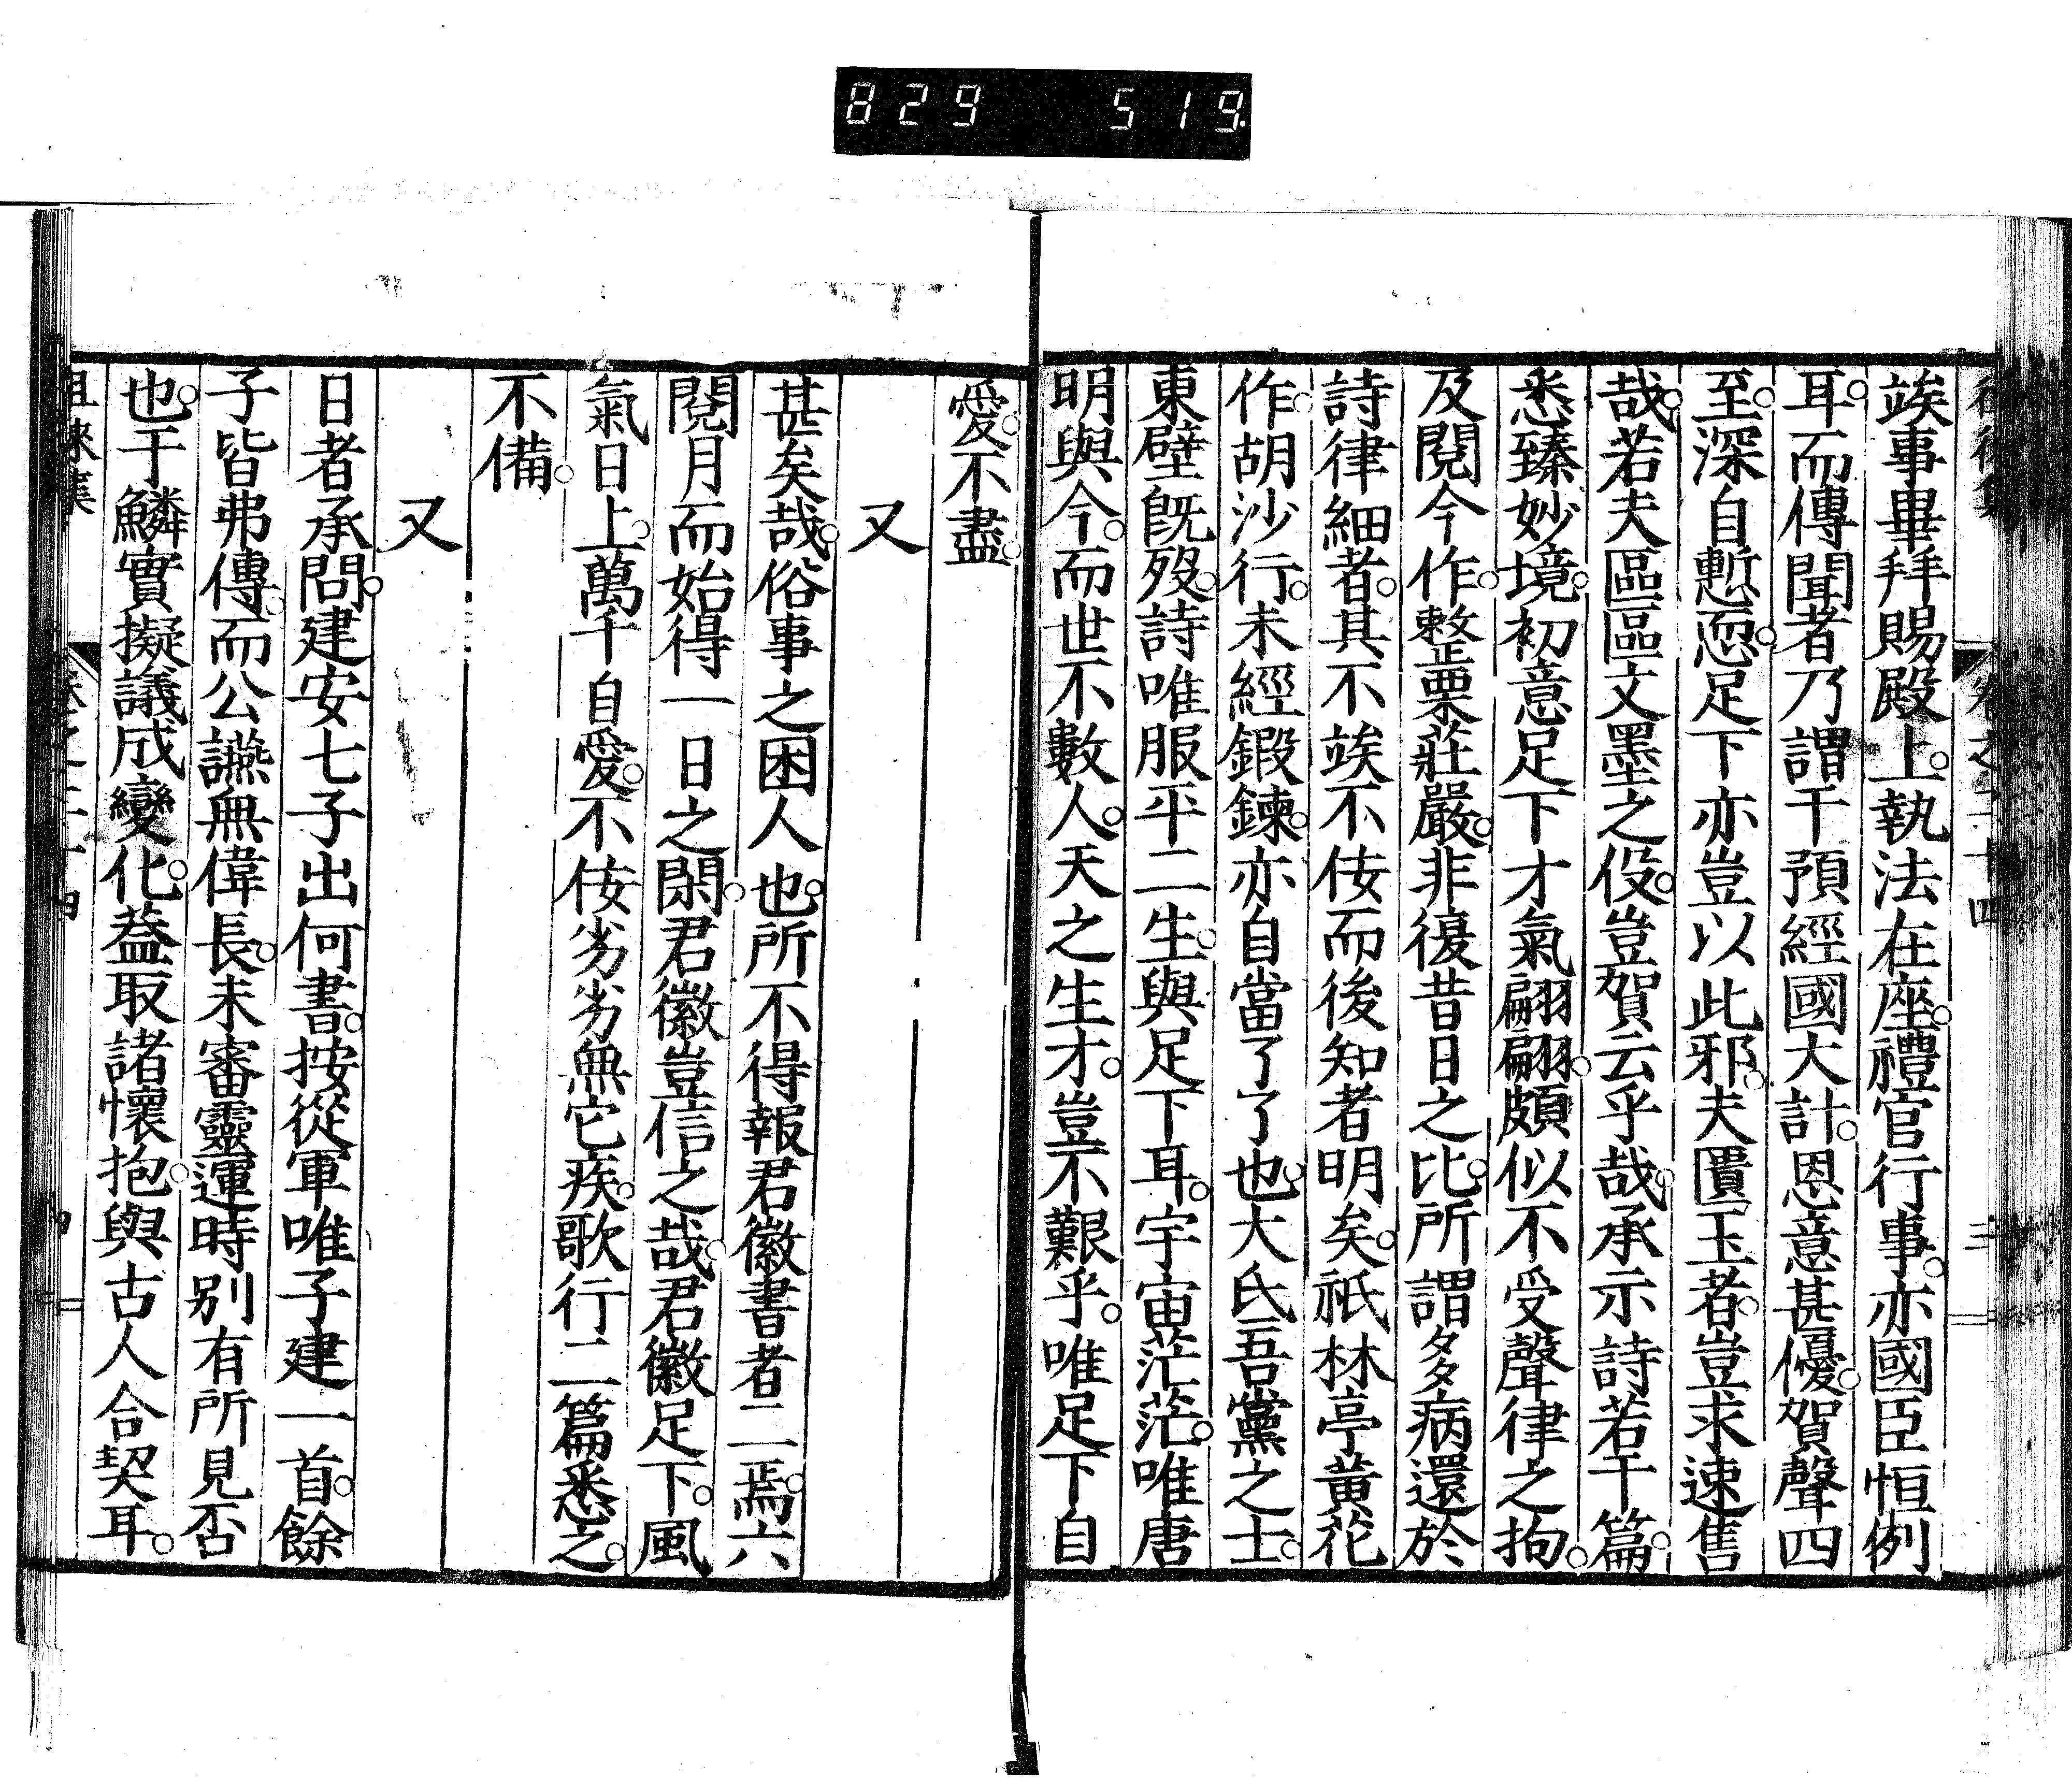 829 519
竢事畢拜賜殿上。執法在座。禮官行事。亦國臣恒例
耳。而傳聞者乃謂干預經國大計。恩意甚優。賀聲四
至。深自慙恧。足下亦豈以此邪。夫匱玉者。豈求速售
哉。若夫區區文墨之伇。豈賀云乎哉。承示詩若干篇。
悉臻妙境。初意足下才氣翩翩。頗似不受聲律之拘。
及閱今作。整栗莊嚴。非復昔日之比。所謂多病還於
詩律細者。其不竢不佞而後知者明矣。祇林亭黃花
作。胡沙行。未經鍛鍊。亦自當了了也。大氐吾黨之士。
東壁旣歿。詩唯服平二生。與足下耳。宇宙茫茫。唯唐
明與今。而世不數人。天之生才。豈不艱乎。唯足下自
愛。不盡。
又
甚矣哉。俗事之困人也。所不得報君徽書者二焉。六
閱月而始得一日之閑。君徽豈信之哉。君徽足下。風
氣日上。萬千自愛。不佞劣劣無它疾。歌行二篇悉之。
不備。
又
日者承問。建安七子出何書。按從軍唯子建一首。餘
子皆弗傳。而公讌無偉長。未審靈運時別有所見否
也。于鱗實擬議成變化。葢取諸懷抱。與古人合契耳。
徂徠集 卷之二十四